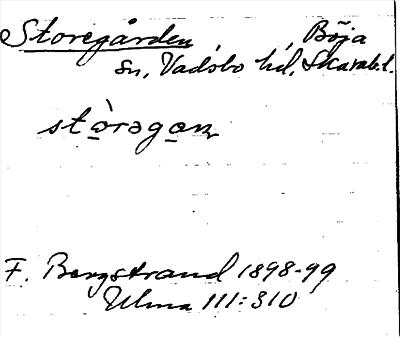 Storegården, Böja
sn, Vadsbo hd, Skarab.l.
stòrəgɑn
F. Bergstrand 1898-99
Ulma 111:310